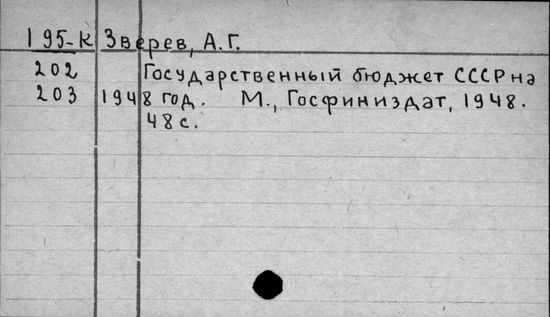 195-К Зверев, А.Г.
202 Государственный бюджет СССР на
203 1948 год. М., Госфиниздат, 1948.
48 с.